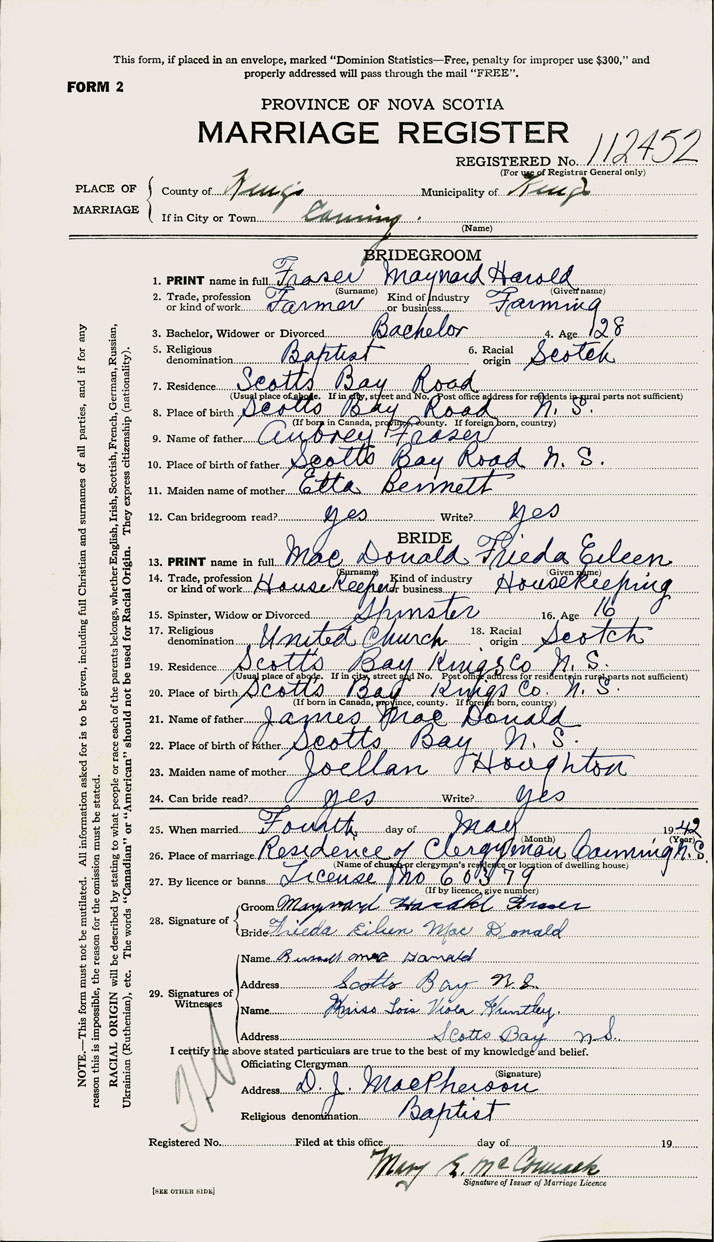 This form, if placed in an envelope, marked "Dominion Statistics—Free, penalty for improper use $300," and
properly addressed will pass through the mail "FREE".
FORM 2
PROVINCE OF NOVA SCOTIA
MARRIAGE REGISTER
REGISTERED No. 112452
(For use of Registrar General only)
PLACE OF MARRIAGE
County of Kings Municipality of Kings
If in City or Town Canning.
(Name)
BRIDEGROOM
1. PRINT name in full Fraser Maynard Harold
(Surname) (Given name)
2. Trade, profession or kind of work Farmer Kind of industry or business Farming
3. Bachelor, Widower or Divorced Bachelor 4. Age 28
5. Religious denomination Baptist 6. Racial origin Scotch
7. Residence Scotts Bay Road
(Usual place of abode. If in city, street and No. Post office address for residents in rural parts not sufficient)
8. Place of birth Scotts Bay Road N. S.
(If born in Canada, province, county. If foreign born, country)
9. Name of father Aubrey Fraser
10. Place of birth of father Scotts Bay Road N. S.
11. Maiden name of mother Etta Bennett
12. Can bridegroom read? yes Write? yes
BRIDE
13. PRINT name in full Mac Donald Frieda Eileen
(Surname) (Given name)
14. Trade, profession or kind of work HouseKeeper Kind of industry or business Housekeeping
15. Spinster, Widow or Divorced Spinster 16. Age 16
17. Religious denomination United Church 18. Racial origin Scotch
19. Residence Scotts Bay Kings Co N. S.
(Usual place of abode. If in city, street and No. Post office address for residents in rural parts not sufficient)
20. Place of birth Scotts Bay Kings Co. N. S.
(If born in Canada, province, county. If foreign born, country)
21. Name of father James Mac Donald
22. Place of birth of father Scotts Bay N. S.
23. Maiden name of mother Joellan Houghton
24. Can bride read? yes Write? yes
25. When married Fourth day of May 1942
(Month) (Year)
26. Place of marriage Residence of Clergyman Canning N. S.
(Name of church or clergyman's residence or location of dwelling house)
27. By licence or banns License No 60379
(If by licence, give number)
28. Signature of
Groom Maynard Harold Fraser
Bride Frieda Eileen Mac Donald
29. Signatures of Witnesses
Name Russell Mac Donald
Address Scotts Bay N.S.
Name Miss Lois Viola Huntley.
Address Scotts Bay N.S.
I certify the above stated particulars are true to the best of my knowledge and belief.
Officiating Clergyman
(Signature)
Address D. J. MacPherson
Religious denomination Baptist
Registered No. Filed at this office day of 19
Mary E. McCormack
Signature of Issuer of Marriage Licence
[SEE OTHER SIDE]
NOTE.—This form must not be mutilated. All information asked for is to be given, including full Christian and surnames of all parties, and if for any
reason this is impossible, the reason for the omission must be stated.
RACIAL ORIGIN will be described by stating to what people or race each of the parents belongs, whether English, Irish, Scottish, French, German, Russian,
Ukrainian (Ruthenian), etc. The words "Canadian" or "American" should not be used for Racial Origin. They express citizenship (nationality).